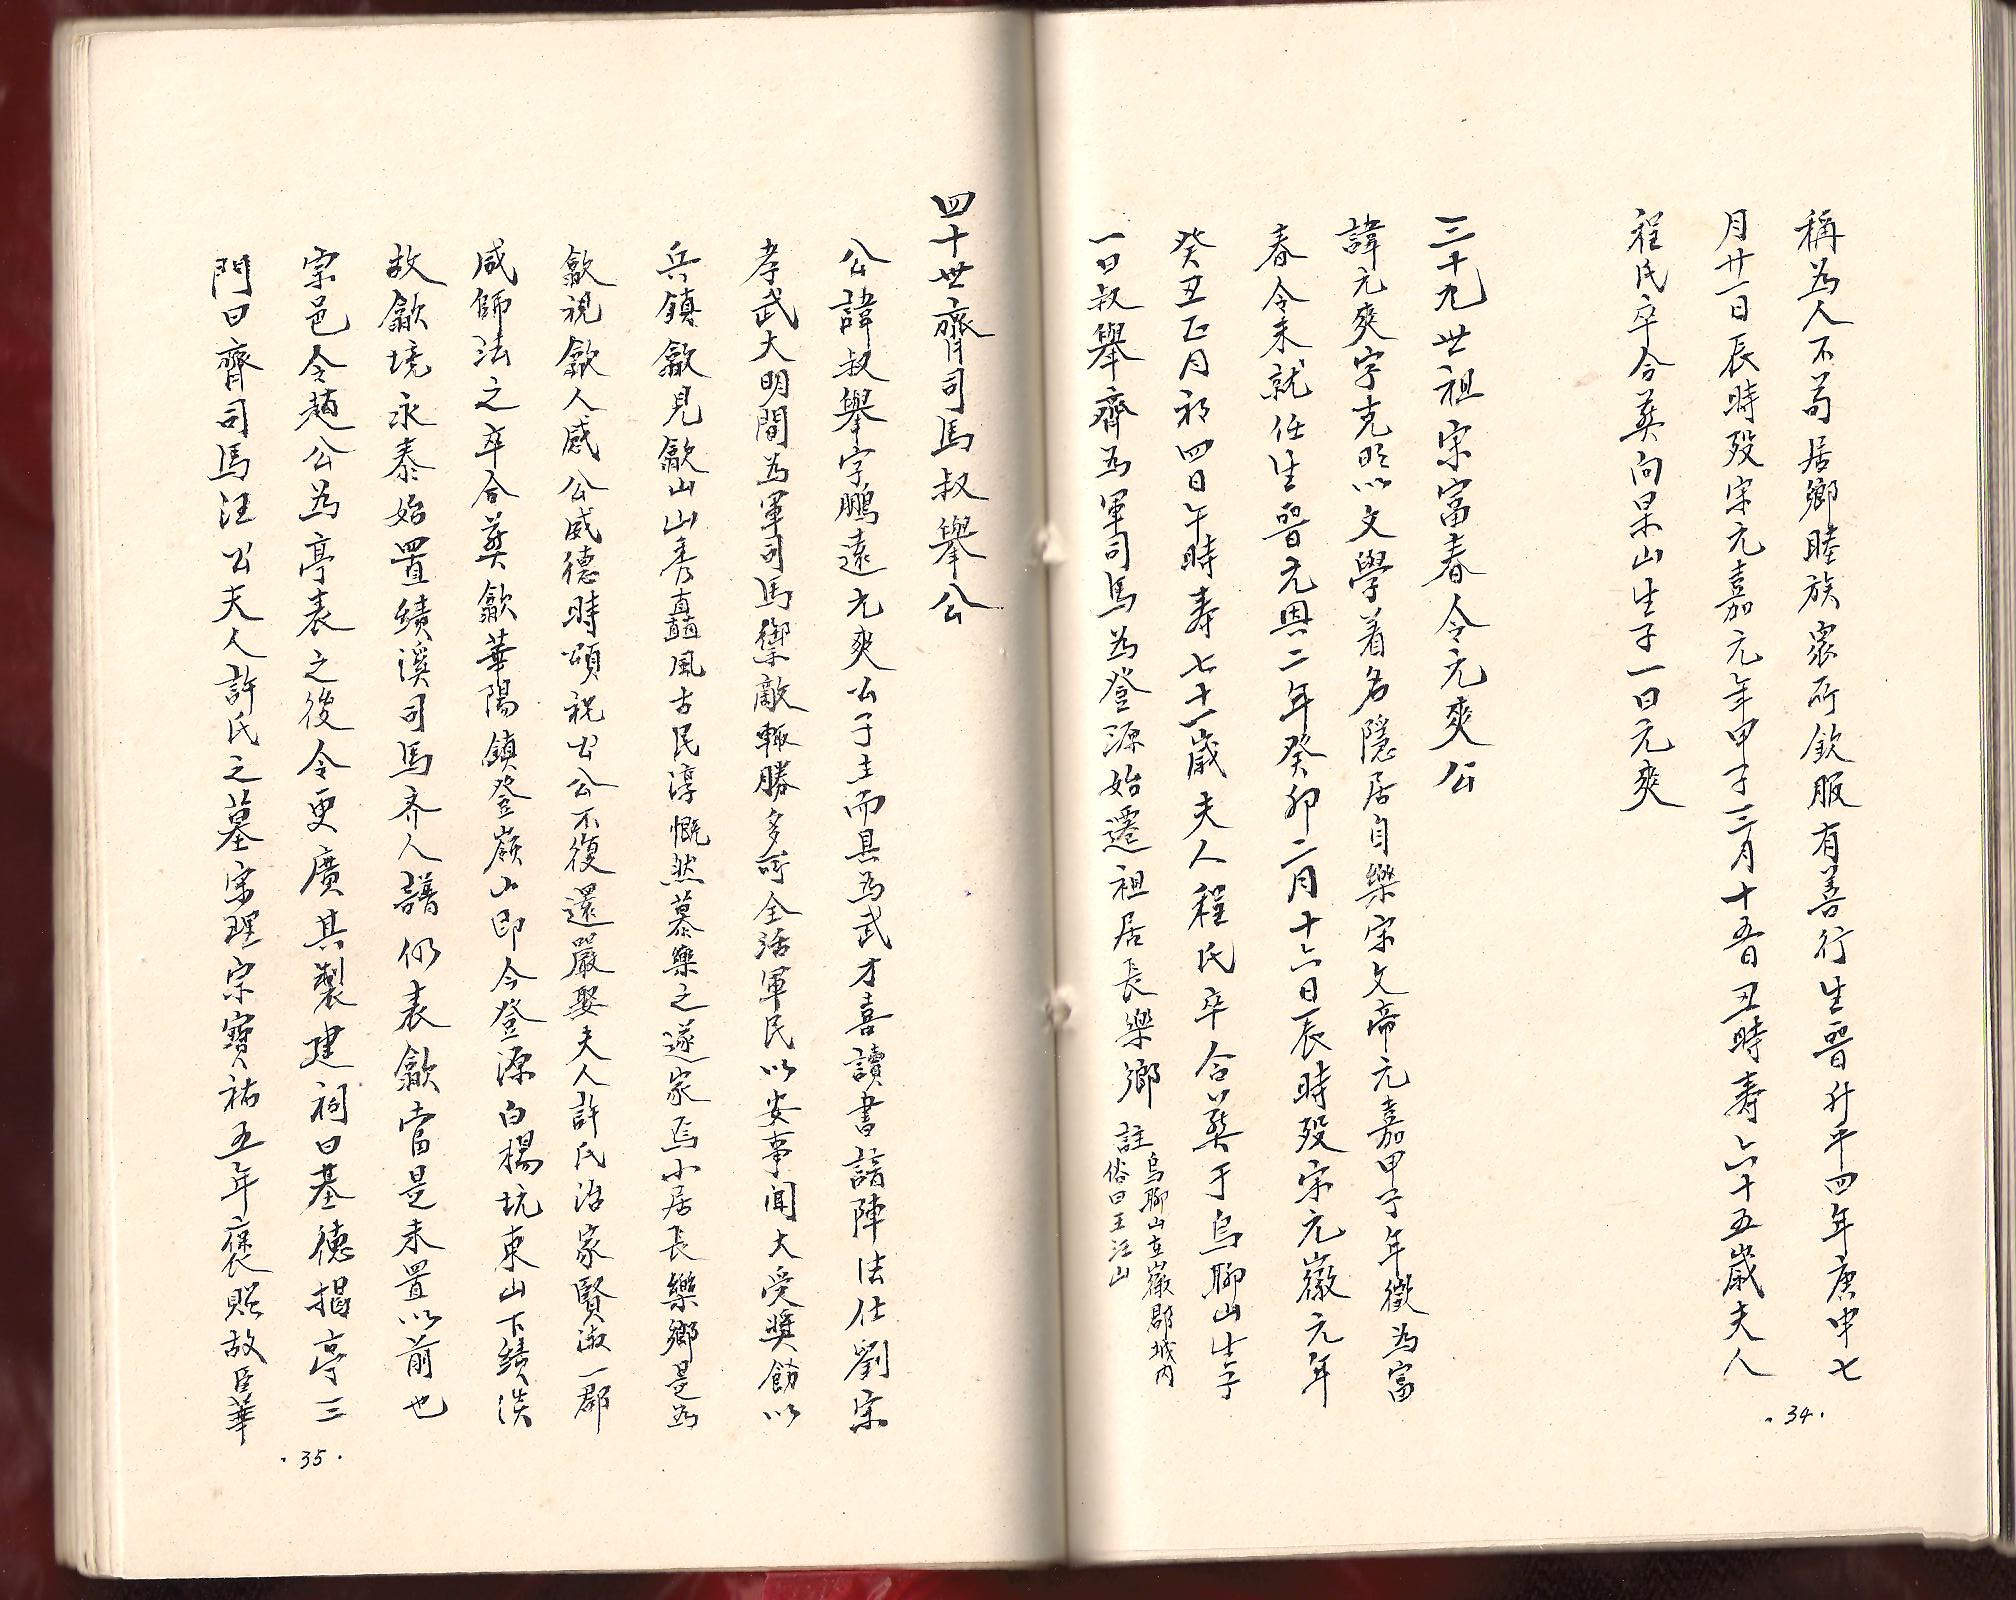 稱為人不苟居鄉睦族衆所欽服有善行生晉升平四年庚申七
月廿一日辰時殁宋元嘉元年甲子三月十五日丑時寿六十五歲夫人
程氏卒合葬向杲山生子一曰元爽
三十九世祖宋富春令元爽公
諱元爽字克明以文學着名隱居自樂宋文帝元嘉甲子年徵為富
春令未就任生晉元興二年癸卯二月十六日辰時殁宋元徽元年
癸丑正月初四日午時寿七十一歲夫人程氏卒合葬于烏聊山生子
一曰叔舉齊為軍司馬為登源始遷祖居長樂鄉 註 烏聊山在徽郡城内
俗曰王汪山
·34·
四十世齊司馬叔舉公
公諱叔舉字鵬遠元爽公子生而具為武才喜讀書諳陣法仕劉宋
孝武大明間為軍司馬禦敵輒勝多所全活軍民以安事闻大受奬飭以
兵鎮歙見歙山山秀矗風古民淳慨然慕樂之遂家焉小居長樂鄉是為
歙視歙人感公威德時頌祝出公不復還嚴娶夫人許氏治家賢淑一郡
咸師法之卒合葬歙華陽鎮登嶺山即今登源白楊坑東山下績溪
故歙境永泰始置績溪司馬齐人譜仍表歙當是未置以前也
宗邑令趙公為亭表之後令更廣其製建祠曰基德揭亭三
門曰齊司馬汪公夫人許氏之墓宋理宗寶祐五年褒贈故臣華
·35·